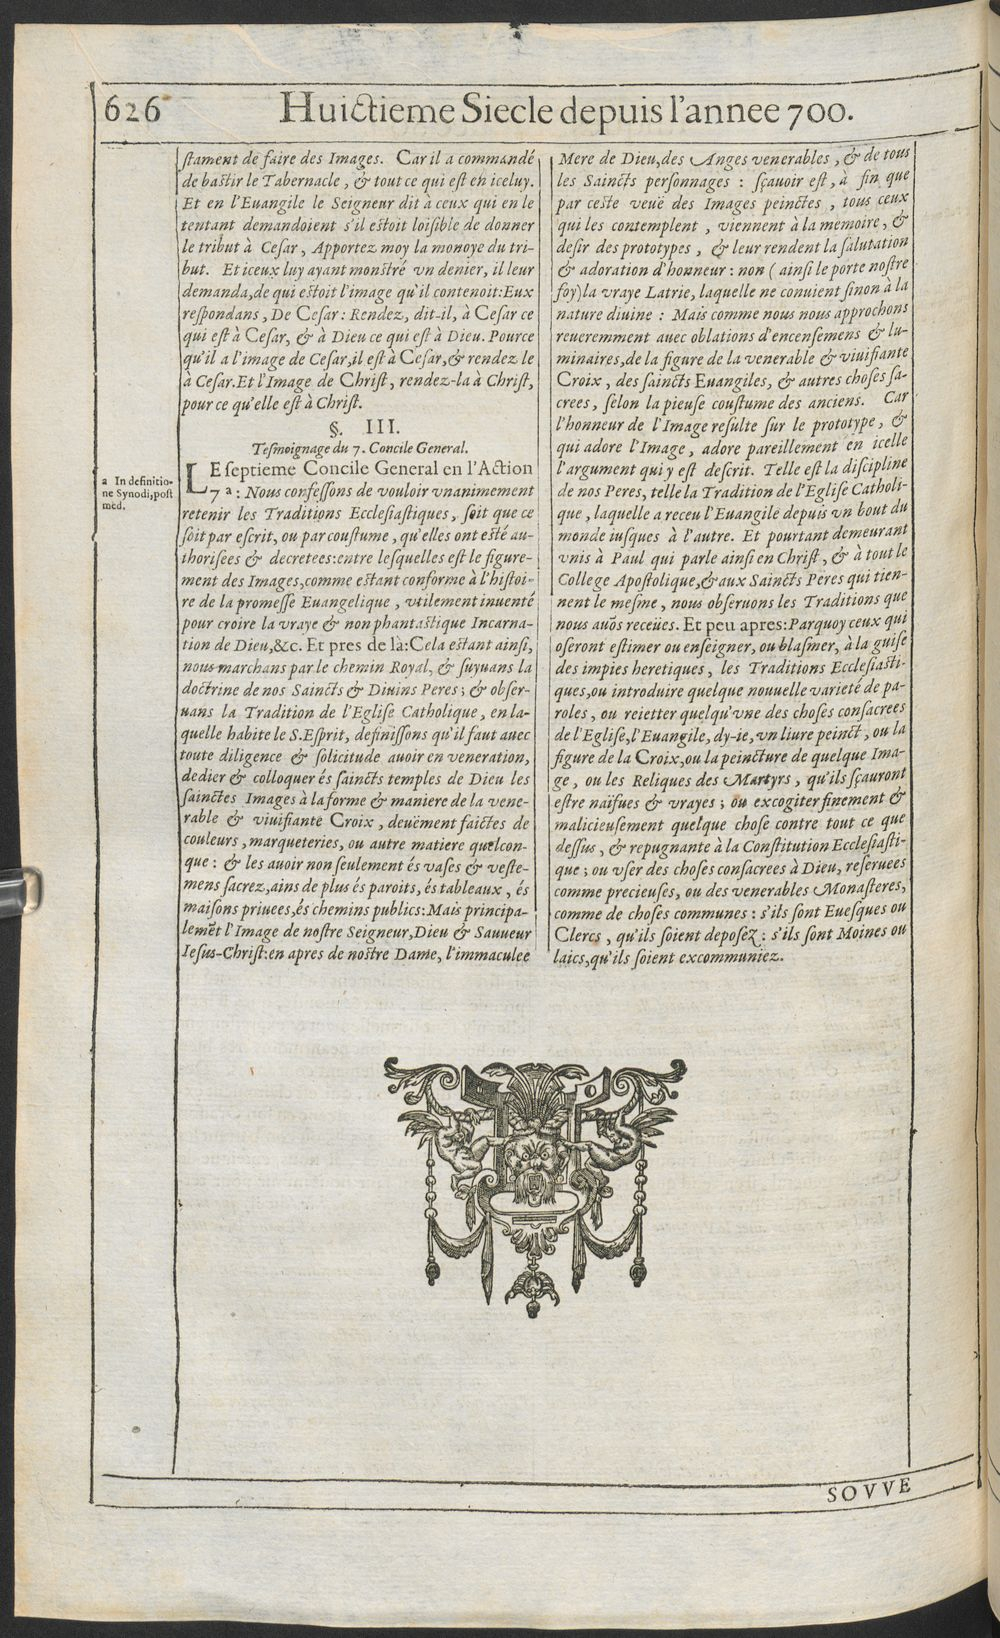 626
Huictieme Siecle depuis l'annee 700.
ſtament de faire des Images. Car il a commandé
de baſtir le Tabernacle, & tout ce qui eſt en iceluy.
Et en l'Euangile le Seigneur dit à ceux qui en le
tentant demandoient s'il eſtoit loiſible de donner
le tribut à Ceſar, Apportez moy la monoye du tri-
but. Et iceux luy ayant monſtré vn denier, il leur
demanda, de qui eſtoit l'image qu'il contenoit: Eux
reſpondans, De Ceſar: Rendez, dit-il, à Ceſar ce
qui eſt à Ceſar, & à Dieu ce qui eſt à Dieu. Pource
qu'il a l'image de Ceſar, il eſt à Ceſar, & rendez le
à Ceſar. Et l'Image de Chriſt, rendez-la à Chriſt,
pour ce qu'elle eſt à Chriſt.
§. III.
Teſmoignage du 7. Concile General.
LE ſeptieme Concile General en l'Action
7 a: Nous confeſſons de vouloir vnanimement
retenir les Traditions Eccleſiaſtiques, ſoit que ce
ſoit par eſcrit, ou par couſtume, qu'elles ont eſté au-
thoriſees & decretees: entre leſquelles eſt le figure-
ment des Images, comme eſtant conforme à l'hiſtoi-
re de la promeſſe Euangelique, vtilement inuenté
pour croire la vraye & non phantaſtique Incarna-
tion de Dieu, &c. Et pres de là: Cela eſtant ainſi,
nous marchans par le chemin Royal, & ſuyuans la
doctrine de nos Saincts & Diuins Peres; & obſer-
uans la Tradition de l'Egliſe Catholique, en la-
quelle habite le S. Eſprit, definiſſons qu'il faut auec
toute diligence & ſolicitude auoir en veneration,
dedier & colloquer és ſaincts temples de Dieu les
ſainctes Images à la forme & maniere de la vene-
rable & viuifiante Croix, deuëment faictes de
couleurs, marqueteries, ou autre matiere quelcon-
que: & les auoir non ſeulement és vaſes & veſte-
mens ſacrez, ains de plus és paroits, és tableaux, és
maiſons priuees, és chemins publics: Mais principa-
lemēt l'Image de noſtre Seigneur, Dieu & Sauueur
Ieſus-Chriſt: en apres de noſtre Dame, l'immaculee
a In definitio-
ne Synodi, poſt
med.
Mere de Dieu, des Anges venerables, & de tous
les Saincts perſonnages: ſçauoir eſt, à fin que
par ceſte veuë des Images peinctes, tous ceux
qui les contemplent, viennent à la memoire, &
deſir des prototypes, & leur rendent la ſalutation
& adoration d'honneur: non (ainſi le porte noſtre
foy) la vraye Latrie, laquelle ne conuient ſinon à la
nature diuine: Mais comme nous nous approchons
reueremment auec oblations d'encenſemens & lu-
minaires, de la figure de la venerable & viuifiante
Croix, des ſaincts Euangiles, & autres choſes ſa-
crees, ſelon la pieuſe couſtume des anciens. Car
l'honneur de l'Image reſulte ſur le prototype, &
qui adore l'Image, adore pareillement en icelle
l'argument qui y eſt deſcrit. Telle eſt la diſcipline
de nos Peres, telle la Tradition de l'Egliſe Catholi-
que, laquelle a receu l'Euangile depuis vn bout du
monde iuſques à l'autre. Et pourtant demeurant
vnis à Paul qui parle ainſi en Chriſt, & à tout le
College Apoſtolique, & aux Saincts Peres qui tien-
nent le meſme, nous obſeruons les Traditions que
nous auōs receües. Et peu apres: Parquoy ceux qui
oſeront eſtimer ou enſeigner, ou blaſmer, à la guiſe
des impies heretiques, les Traditions Eccleſiaſti-
ques, ou introduire quelque nouuelle varieté de pa-
roles, ou reietter quelqu'vne des choſes conſacrees
de l'Egliſe, l'Euangile, dy-ie, vn liure peinct, ou la
figure de la Croix, ou la peincture de quelque Ima-
ge, ou les Reliques des Martyrs, qu'ils ſçauront
eſtre naïfues & vrayes; ou excogiter finement &
malicieuſement quelque choſe contre tout ce que
deſſus, & repugnante à la Conſtitution Eccleſiaſti-
que; ou vſer des choſes conſacrees à Dieu, reſeruees
comme precieuſes, ou des venerables Monaſteres,
comme de choſes communes: s'ils ſont Eueſques ou
Clercs, qu'ils ſoient depoſez: s'ils ſont Moines ou
laics, qu'ils ſoient excommuniez.
SOVVE